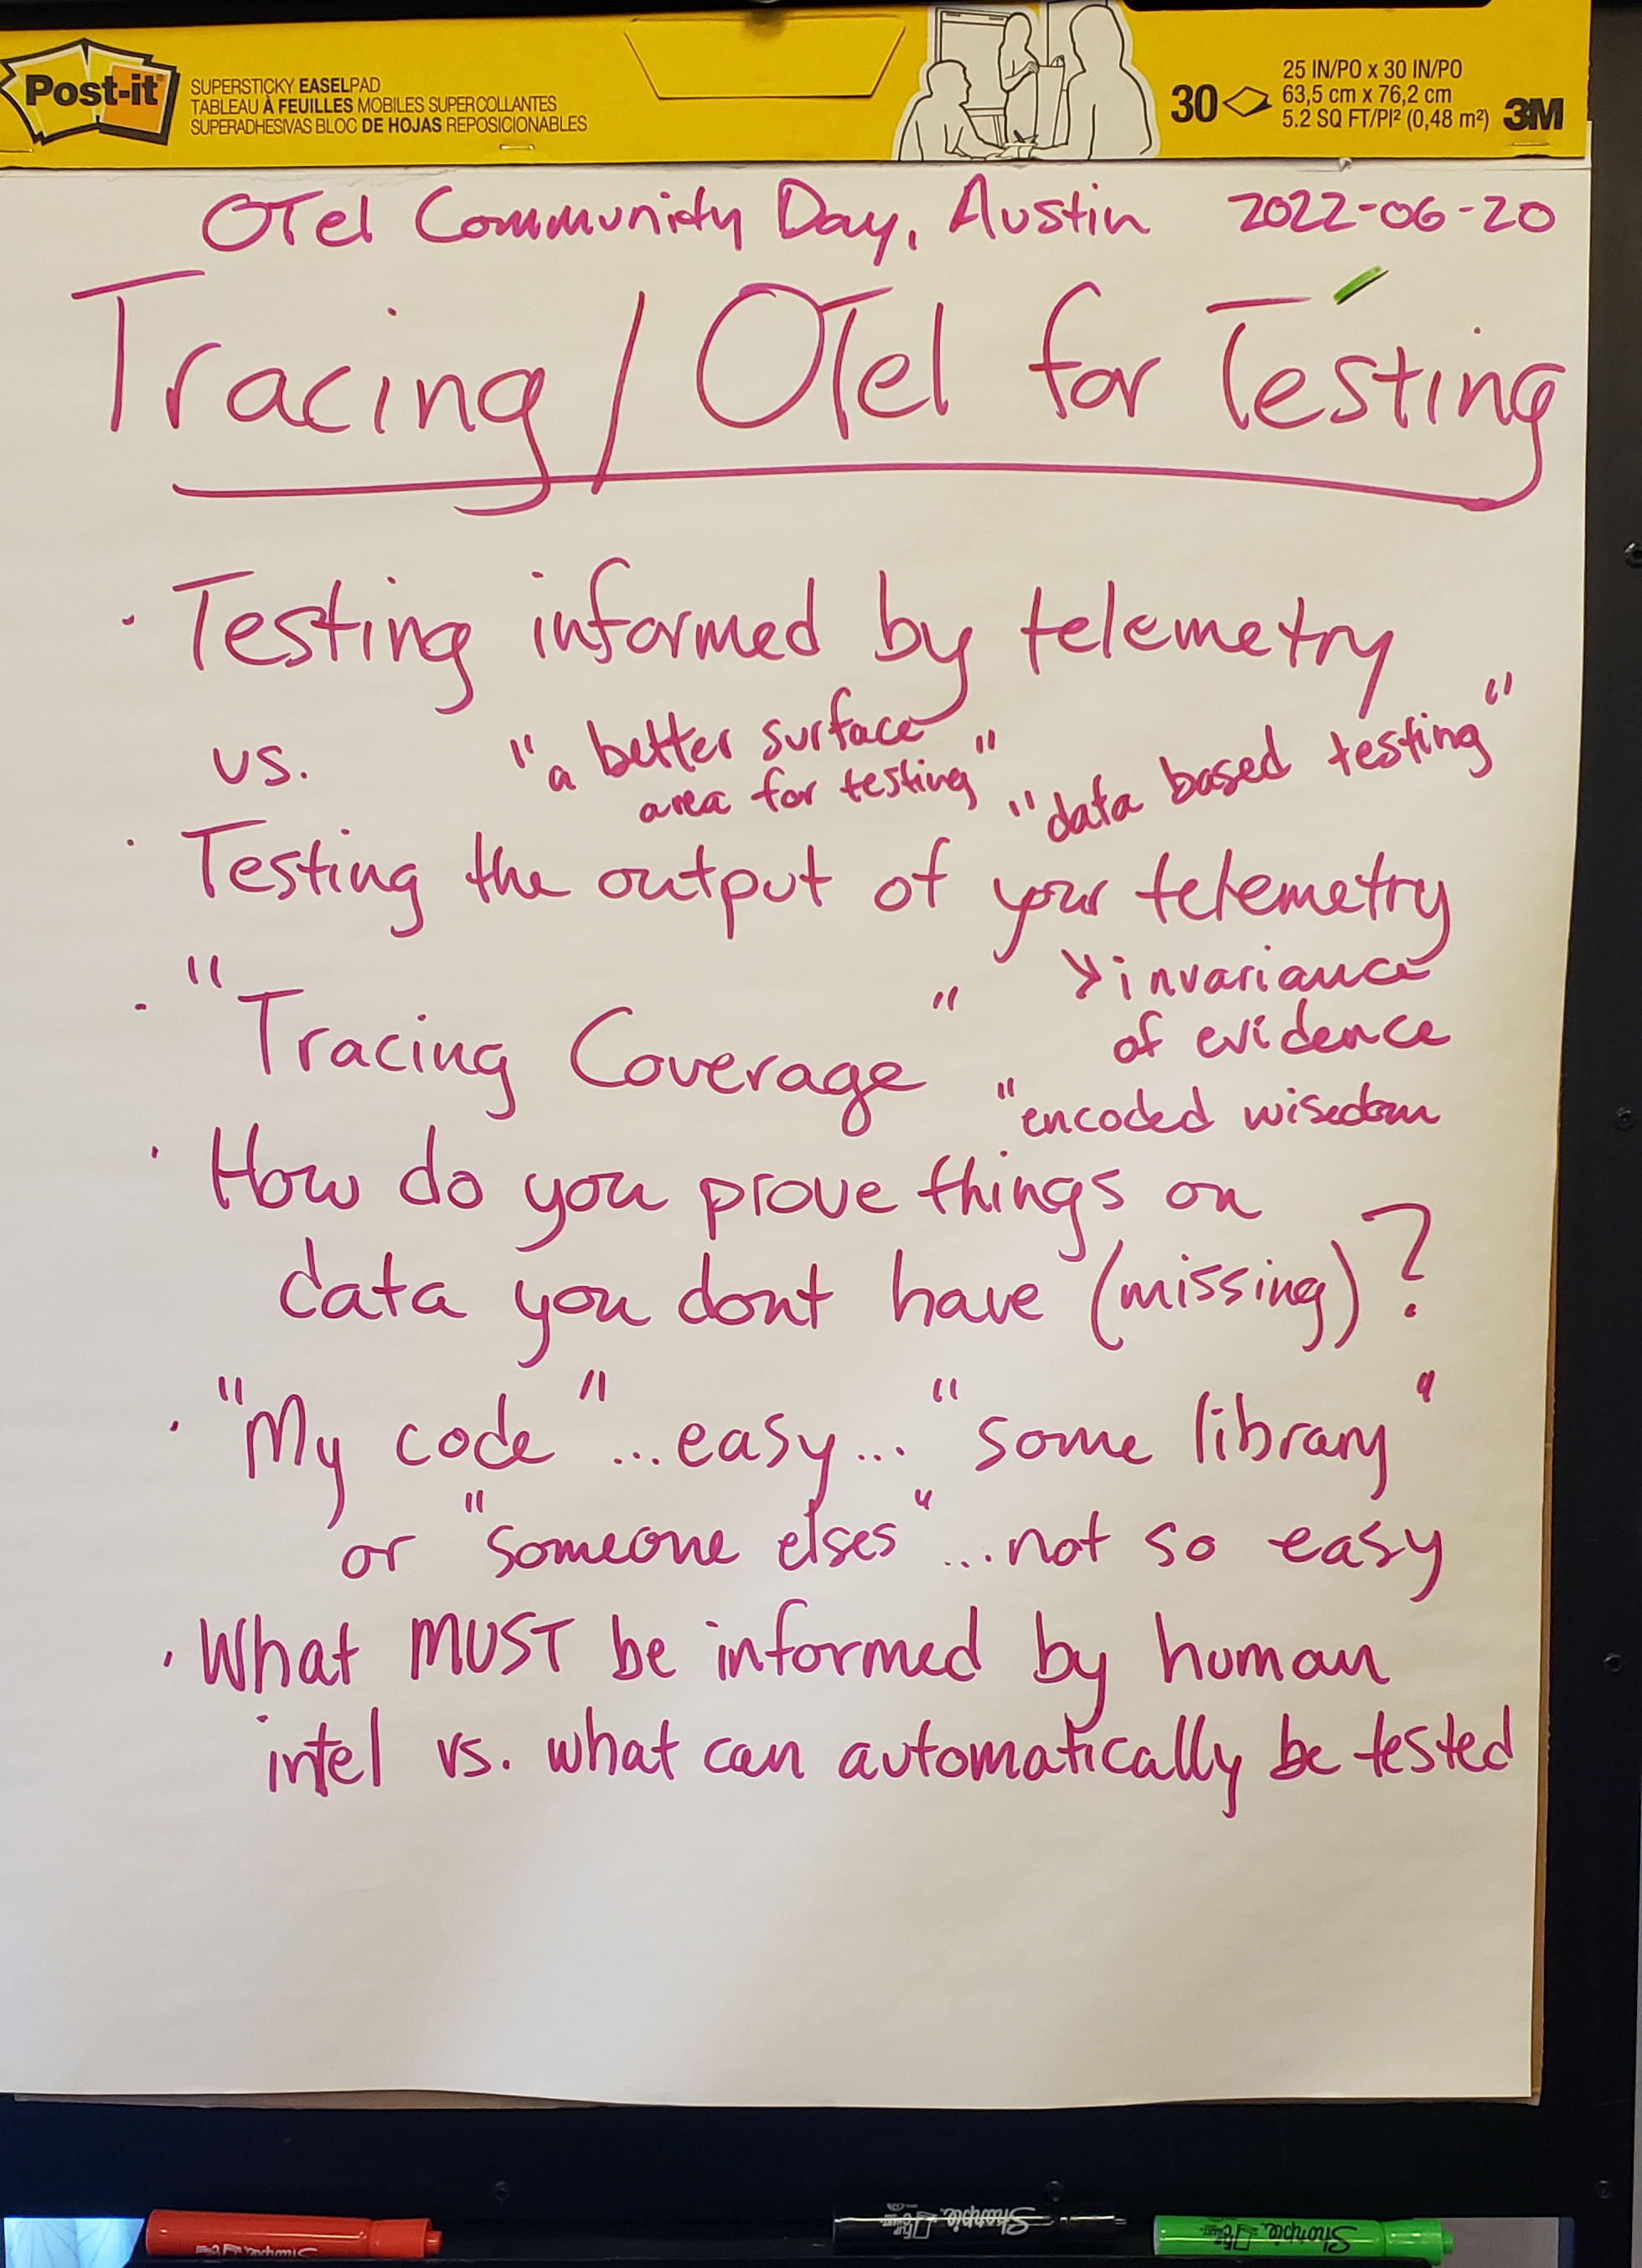 Post-it
SUPERSTICKY EASELPAD
TABLEAU À FEUILLES MOBILES SUPERCOLLANTES
SUPERADHESIVAS BLOC DE HOJAS REPOSICIONABLES
30
25 IN/PO x 30 IN/PO
63,5 cm x 76,2 cm
5.2 SQ FT/PI² (0,48 m²)
3M
OTel Community Day, Austin 2022-06-20
Tracing / OTel for Testing
· Testing informed by telemetry
vs.
"a better surface
area for testing"
"data based testing"
· Testing the output of your telemetry
> invariance
of evidence
· "Tracing Coverage"
"encoded wisedom
· How do you prove things on
data you dont have (missing)?
· "My code" ... easy... "some library"
or "someone elses" ... not so easy
· What MUST be informed by human
intel vs. what can automatically be tested
Sharpie
Sharpie
Sharpie